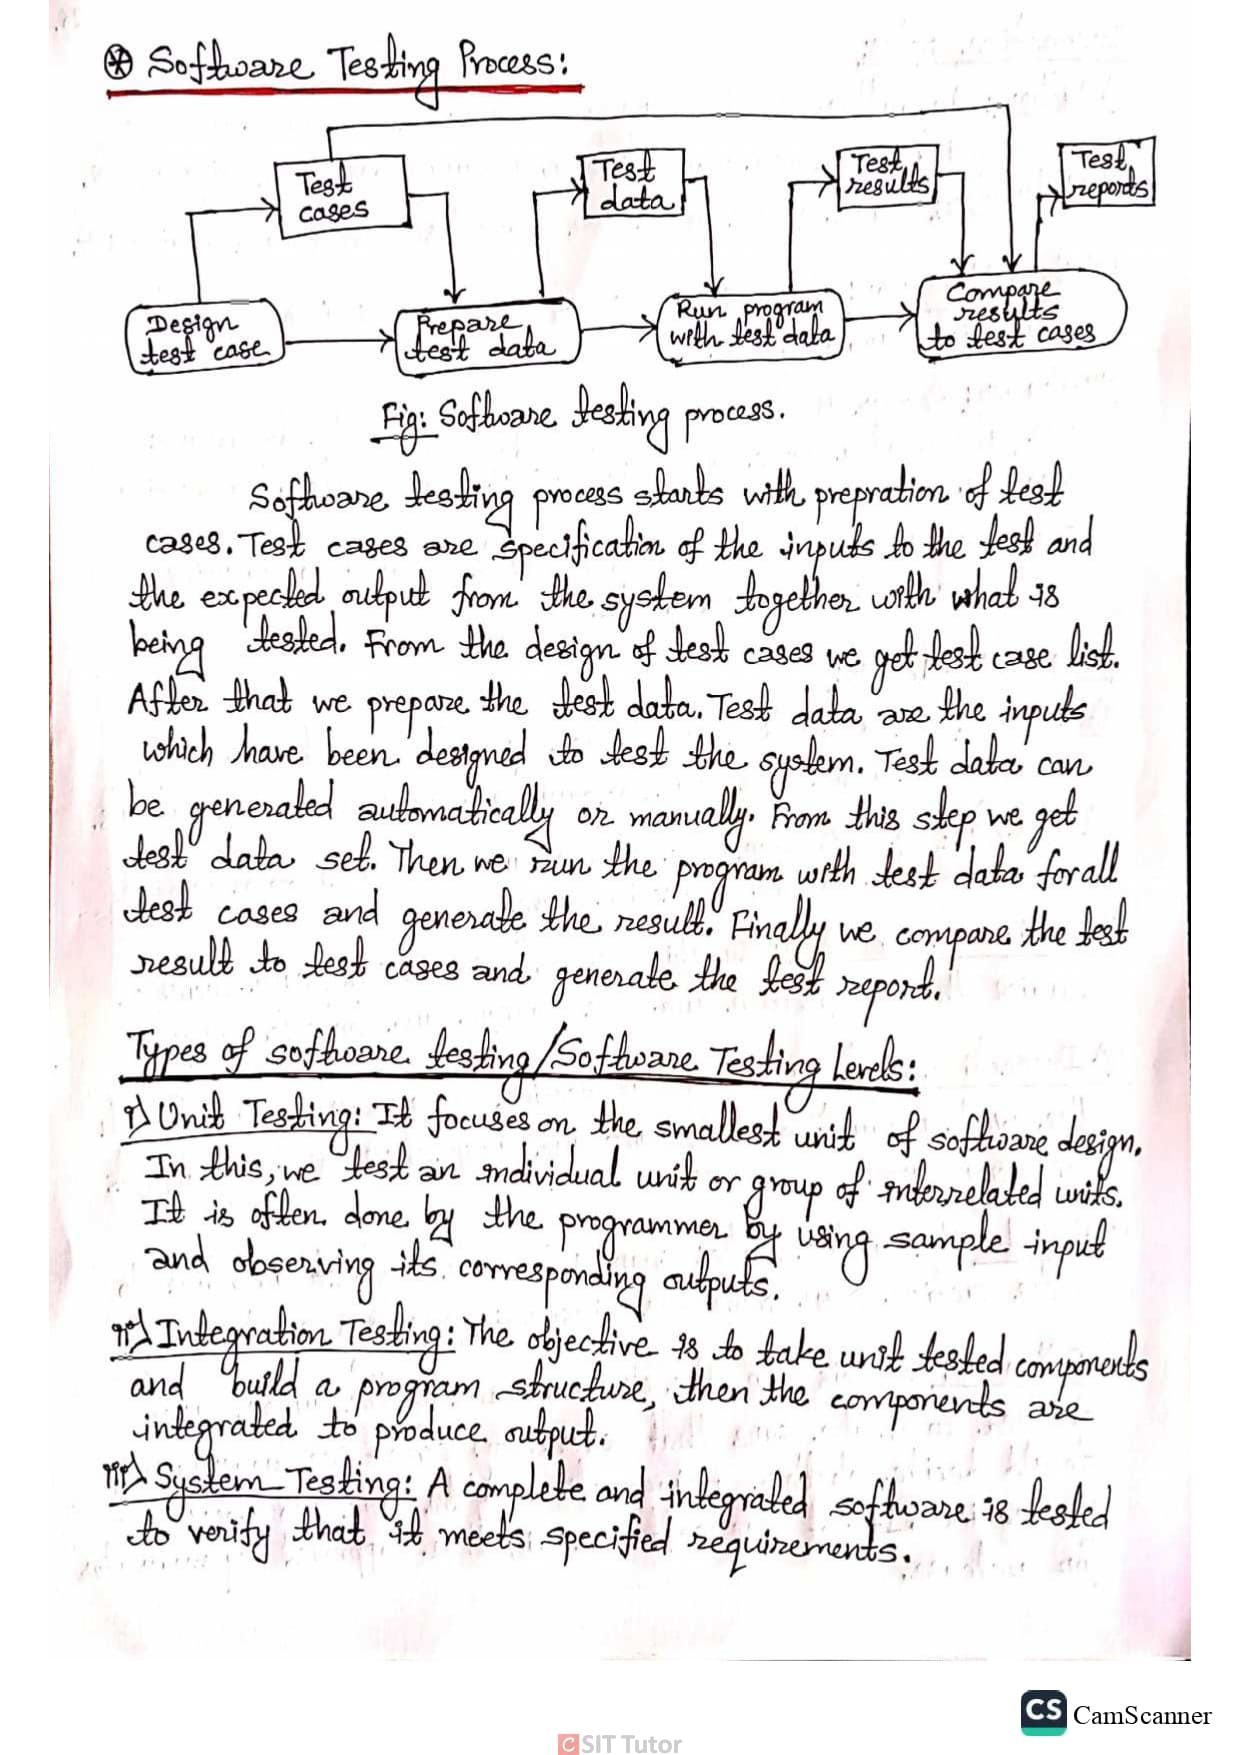 ⊛ Software Testing Process:
Test cases
Test data
Test results
Test reports
Design test case
Prepare test data
Run program with test data
Compare results to test cases
Fig: Software testing process.
Software testing process starts with prepration of test
cases. Test cases are specification of the inputs to the test and
the expected output from the system together with what is
being tested. From the design of test cases we get test case list.
After that we prepare the test data. Test data are the inputs
which have been designed to test the system. Test data can
be generated automatically or manually. From this step we get
test data set. Then we run the program with test data for all
test cases and generate the result. Finally we compare the test
result to test cases and generate the test report.
Types of software testing/Software Testing Levels:
i) Unit Testing: It focuses on the smallest unit of software design.
In this, we test an individual unit or group of interrelated units.
It is often done by the programmer by using sample input
and observing its corresponding outputs.
ii) Integration Testing: The objective is to take unit tested components
and build a program structure, then the components are
integrated to produce output.
iii) System Testing: A complete and integrated software is tested
to verify that it meets specified requirements.
CS CamScanner
CSIT Tutor